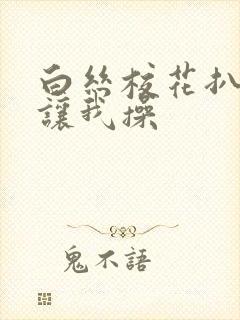 白絲校花扒
讓我操
鬼不語